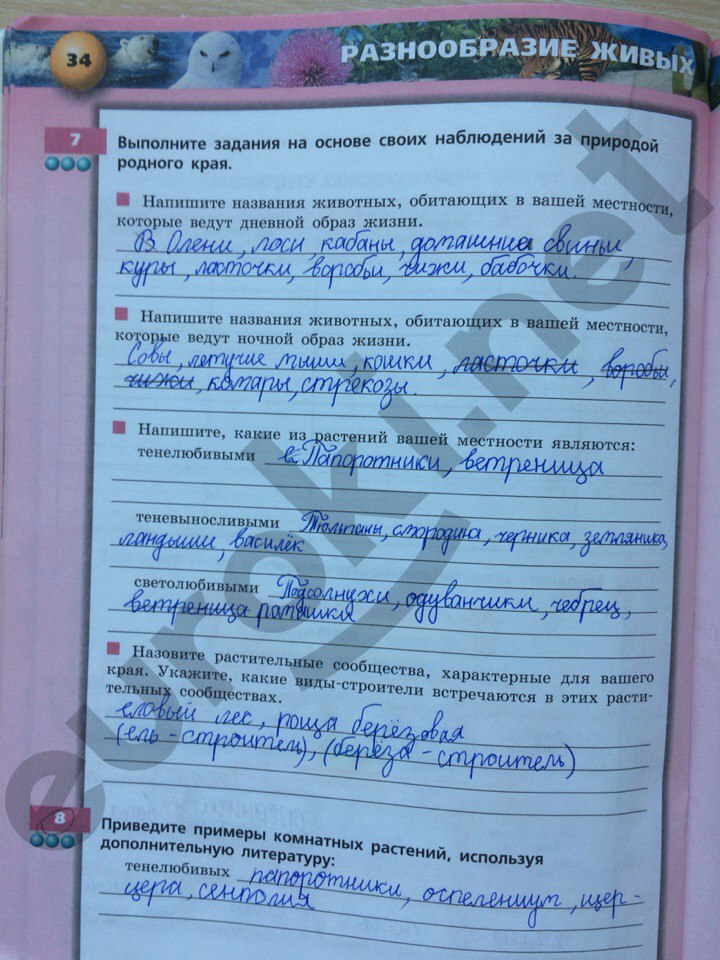 34
РАЗНООБРАЗИЕ ЖИВЫХ
7
Выполните задания на основе своих наблюдений за природой
родного края.
Напишите названия животных, обитающих в вашей местности,
которые ведут дневной образ жизни.
В Олени, лоси кабаны, домашние свиньи,
куры, ласточки, воробьи, чижи, бабочки.
Напишите названия животных, обитающих в вашей местности,
которые ведут ночной образ жизни.
Совы, летучие мыши, кошки, ласточки, воробьи,
чижи, комары, стрекозы.
Напишите, какие из растений вашей местности являются:
тенелюбивыми Папоротники, ветреница
теневыносливыми Тюльпаны, смородина, черника, земляника,
ландыши, василёк
светолюбивыми Подсолнухи, одуванчики, чебрец,
ветреница ромашки
Назовите растительные сообщества, характерные для вашего
края. Укажите, какие виды-строители встречаются в этих расти-
тельных сообществах.
еловый лес, роща берёзовая
(ель - строитель), (берёза - строитель)
8
Приведите примеры комнатных растений, используя
дополнительную литературу:
тенелюбивых папоротники, оспелениум, щер-
цера, сенполия
euroki.net